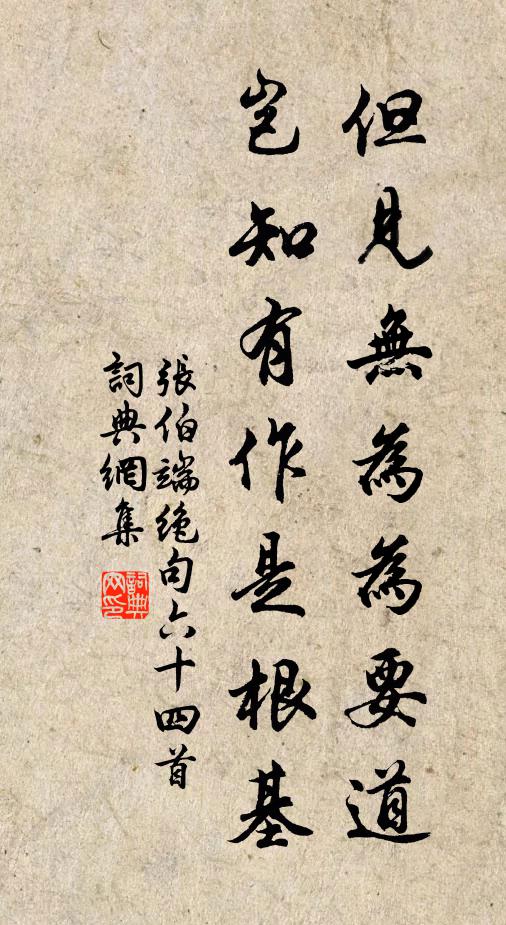 但見無為為要道
豈知有作是根基
張伯端絕句六十四首
詞典網集
詞典
网印